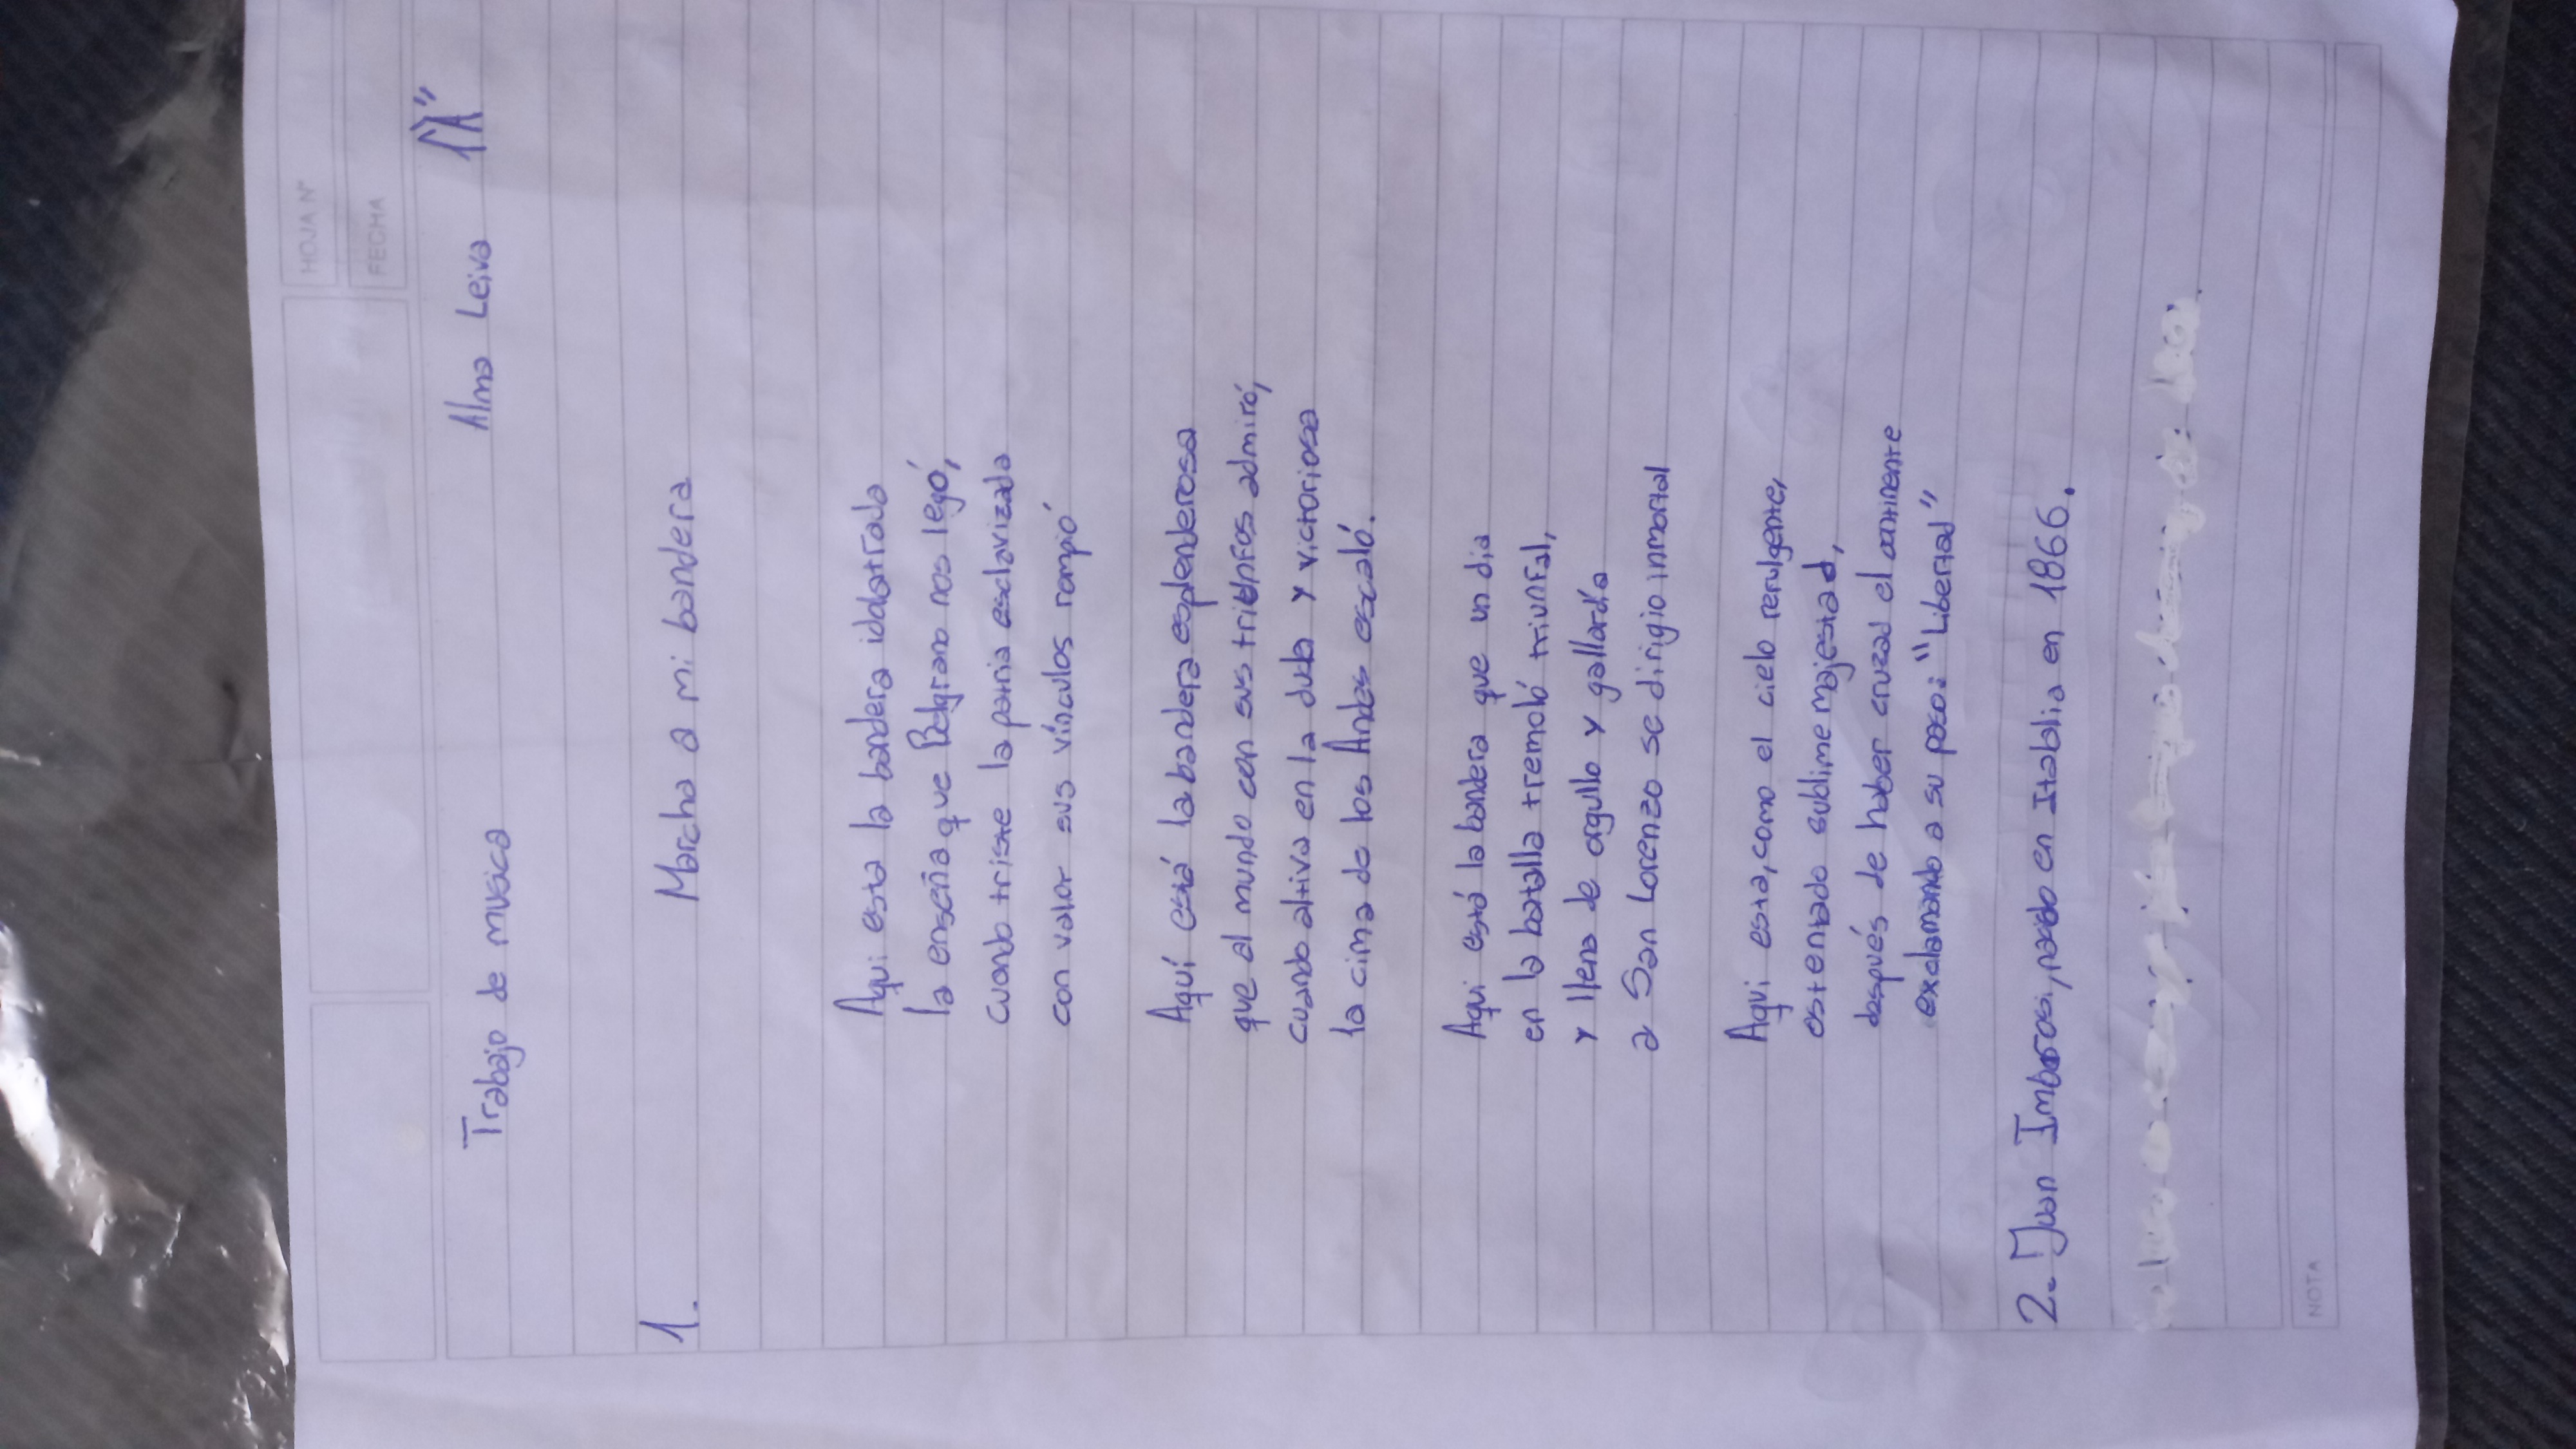 HOJA N°
FECHA
Trabajo de musica Alma Leiva 1"A"
1. Marcha a mi bandera
Aqui esta la bandera idolatrada
la enseña que Belgrano nos legó,
cuando triste la patria esclavizada
con valor sus vínculos rompió
Aquí está la bandera esplenderosa
que al mundo con sus triunfos admiró,
cuando altiva en la duda y victoriosa
la cima de los Andes escaló.
Aqui está la bandera que un dia
en la batalla tremoló triunfal,
y llena de orgullo y gallardía
a San Lorenzo se dirigio inmortal
Aqui esta, como el cielo refulgente,
ostentado sublime majestad,
después de haber cruzad el continente
exalamando a su paso: "Libertad"
2. Juan Imbrosi, nacido en Itablia en 1866.
NOTA